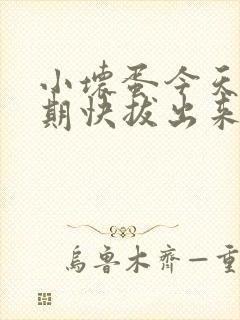 小壞蛋今天
期快拔出来
烏魯木齊—重